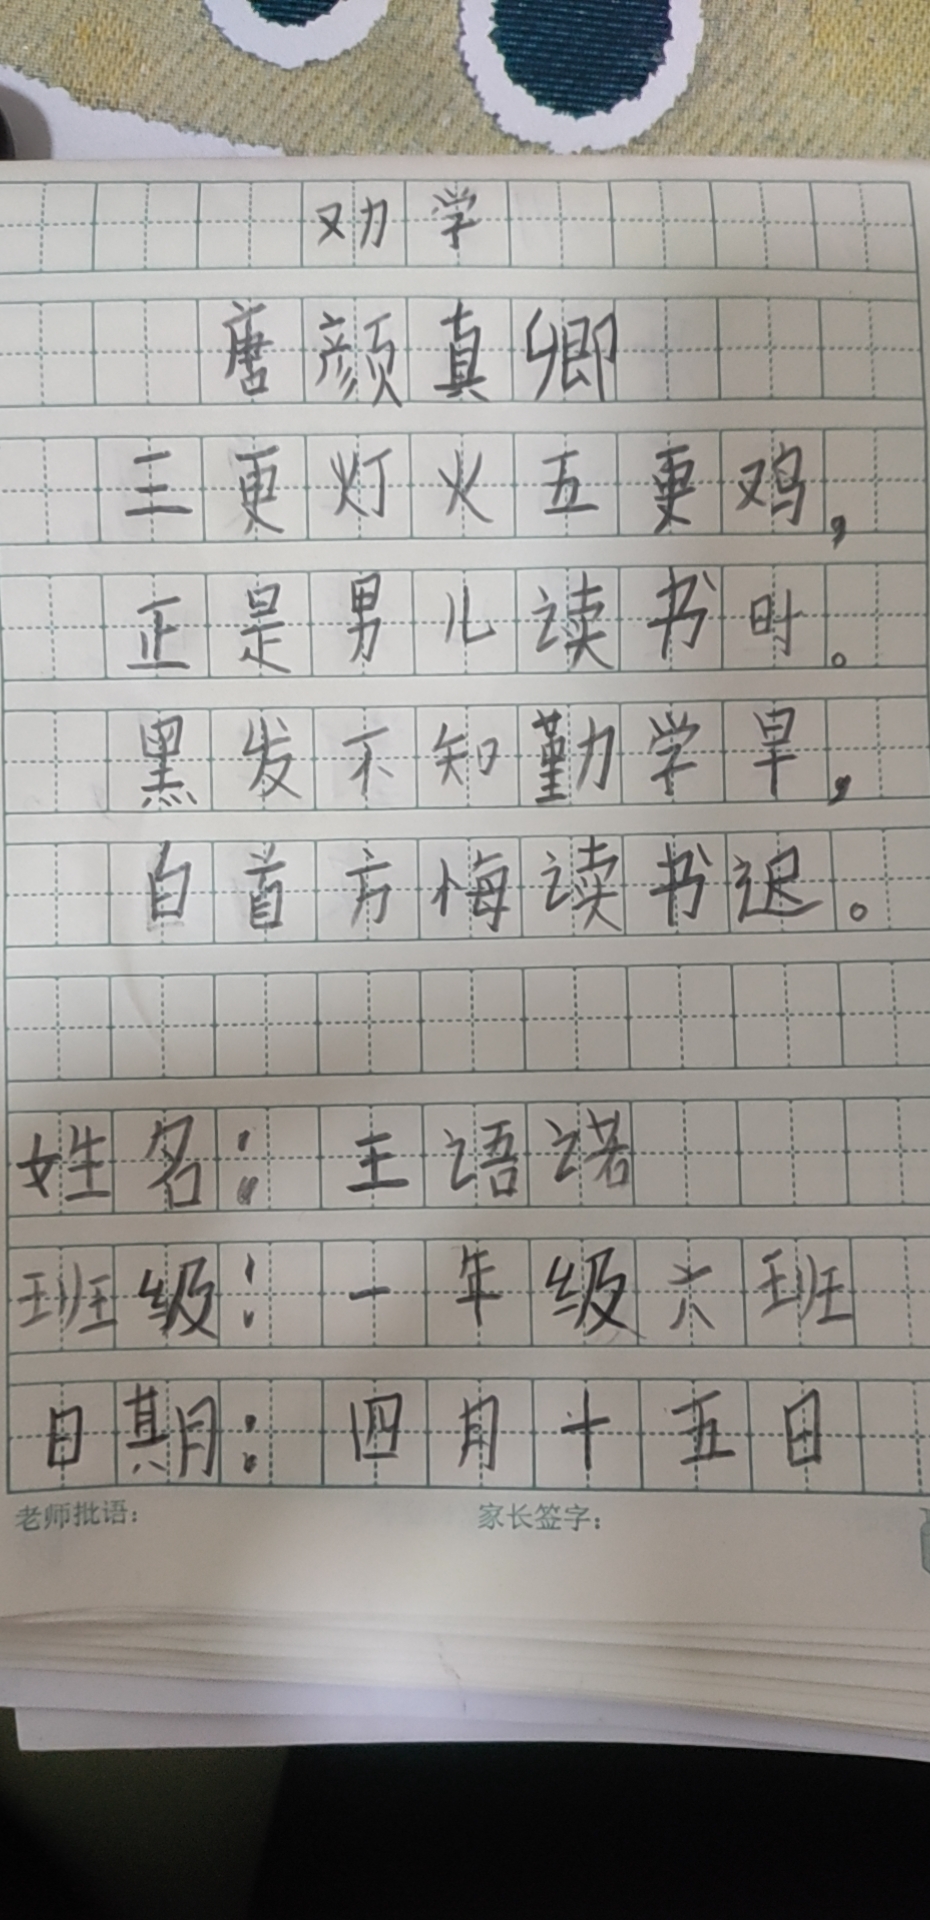 劝学
唐颜真卿
三更灯火五更鸡，
正是男儿读书时。
黑发不知勤学早，
白首方悔读书迟。
姓名：王语诺
班级：一年级六班
日期：四月十五日
老师批语： 家长签字：